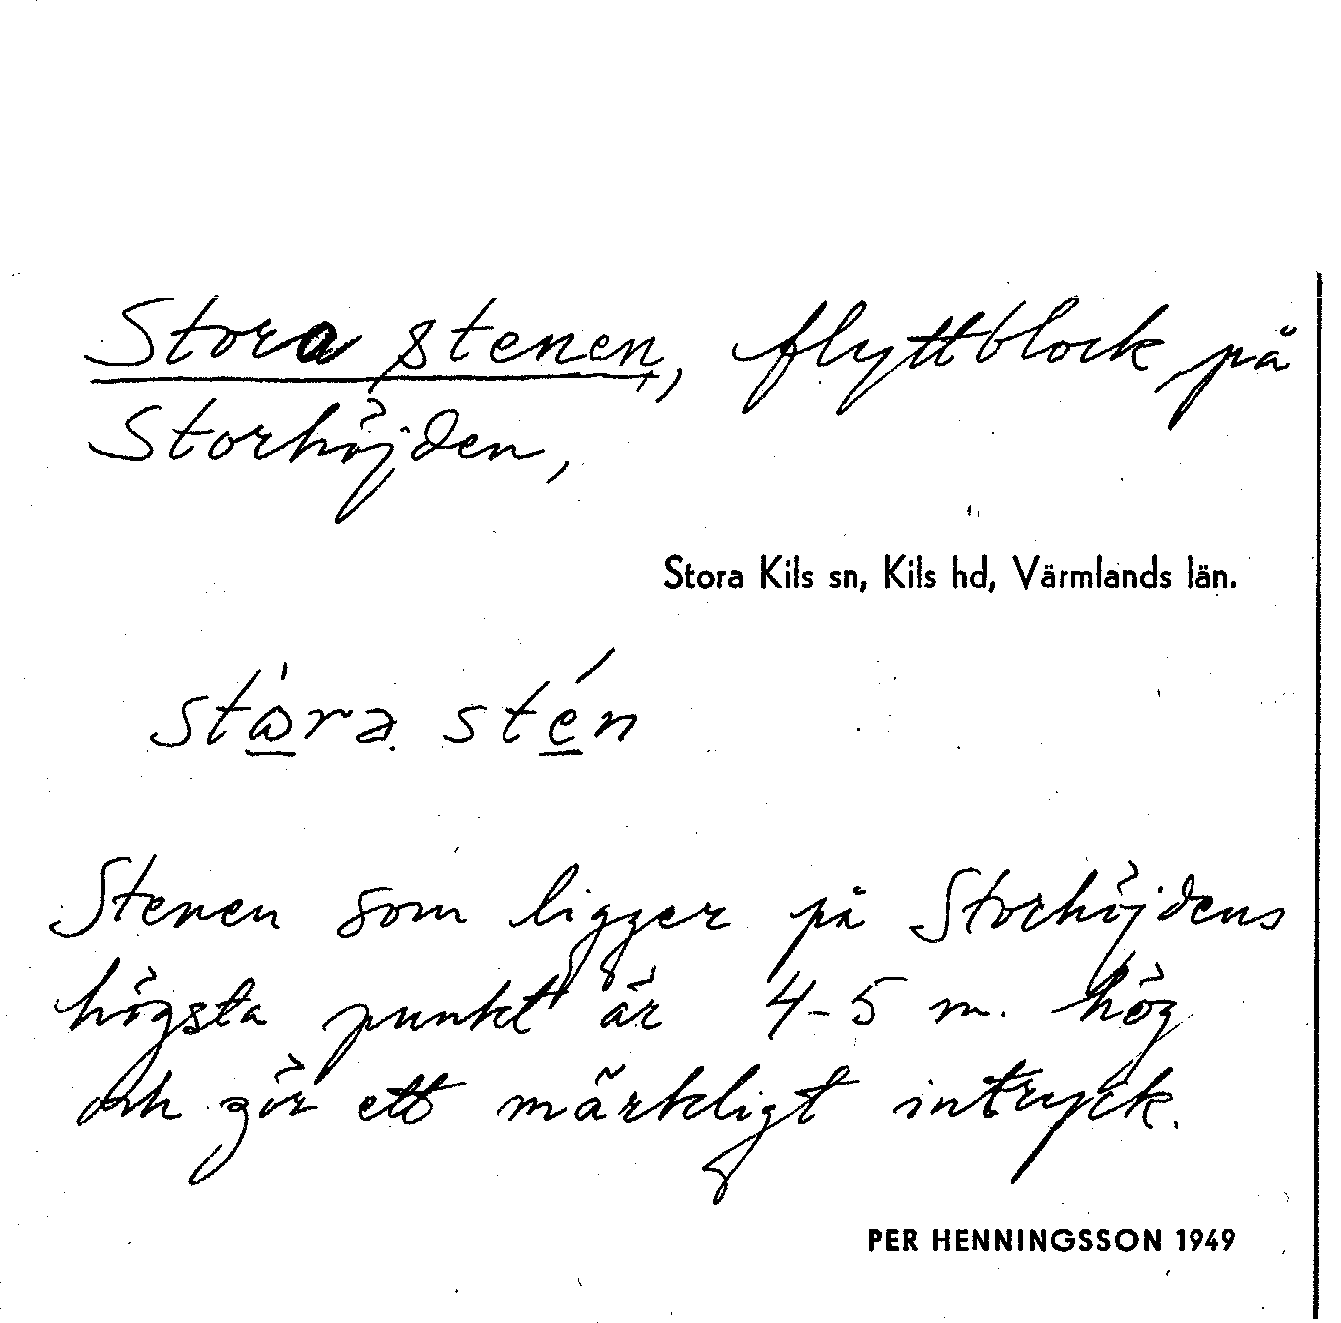 Stora stenen, flyttblock på
Storhöjden,
Stora Kils sn, Kils hd, Värmlands län.
stɷ̀ra stén
Stenen som ligger på Storhöjdens
högsta punkt är 4-5 m. hög
och gör ett märkligt intryck.
PER HENNINGSSON 1949